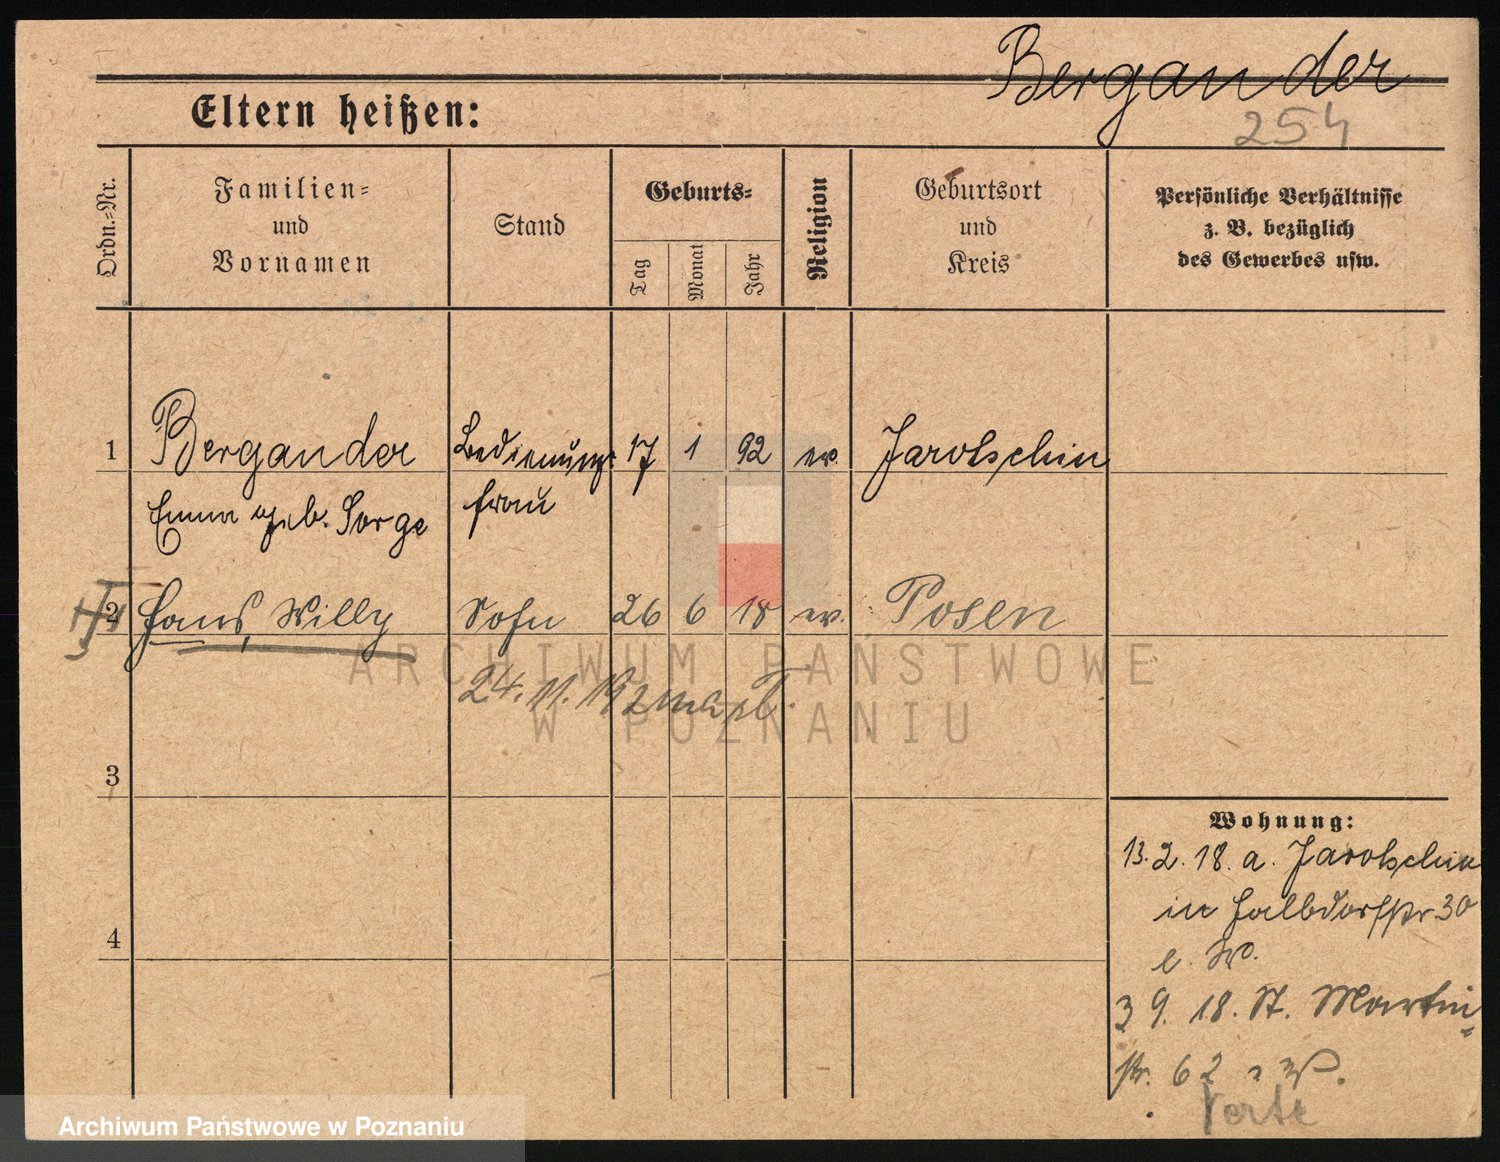 Bergander
Eltern heißen:
254
Ordn.=Nr.
Familien=
und
Vornamen
Stand
Geburts=
Tag
Monat
Jahr
Religion
Geburtsort
und
Kreis
Persönliche Verhältnisse
z. B. bezüglich
des Gewerbes usw.
1 Bergander Bedienungs 17 1 92 ev. Jarotschin
Emma geb. Sorge frau
2 Hans, Willy Sohn 26 6 18 ev. Posen
24. 11.
3
4
Wohnung:
13. 2. 18. a. Jarotschin
in Halbdorfstr 30
b. W.
3 9. 18. St. Martin=
str. 62 W.
Verte
ARCHIWUM PAŃSTWOWE
W POZNANIU
Archiwum Państwowe w Poznaniu